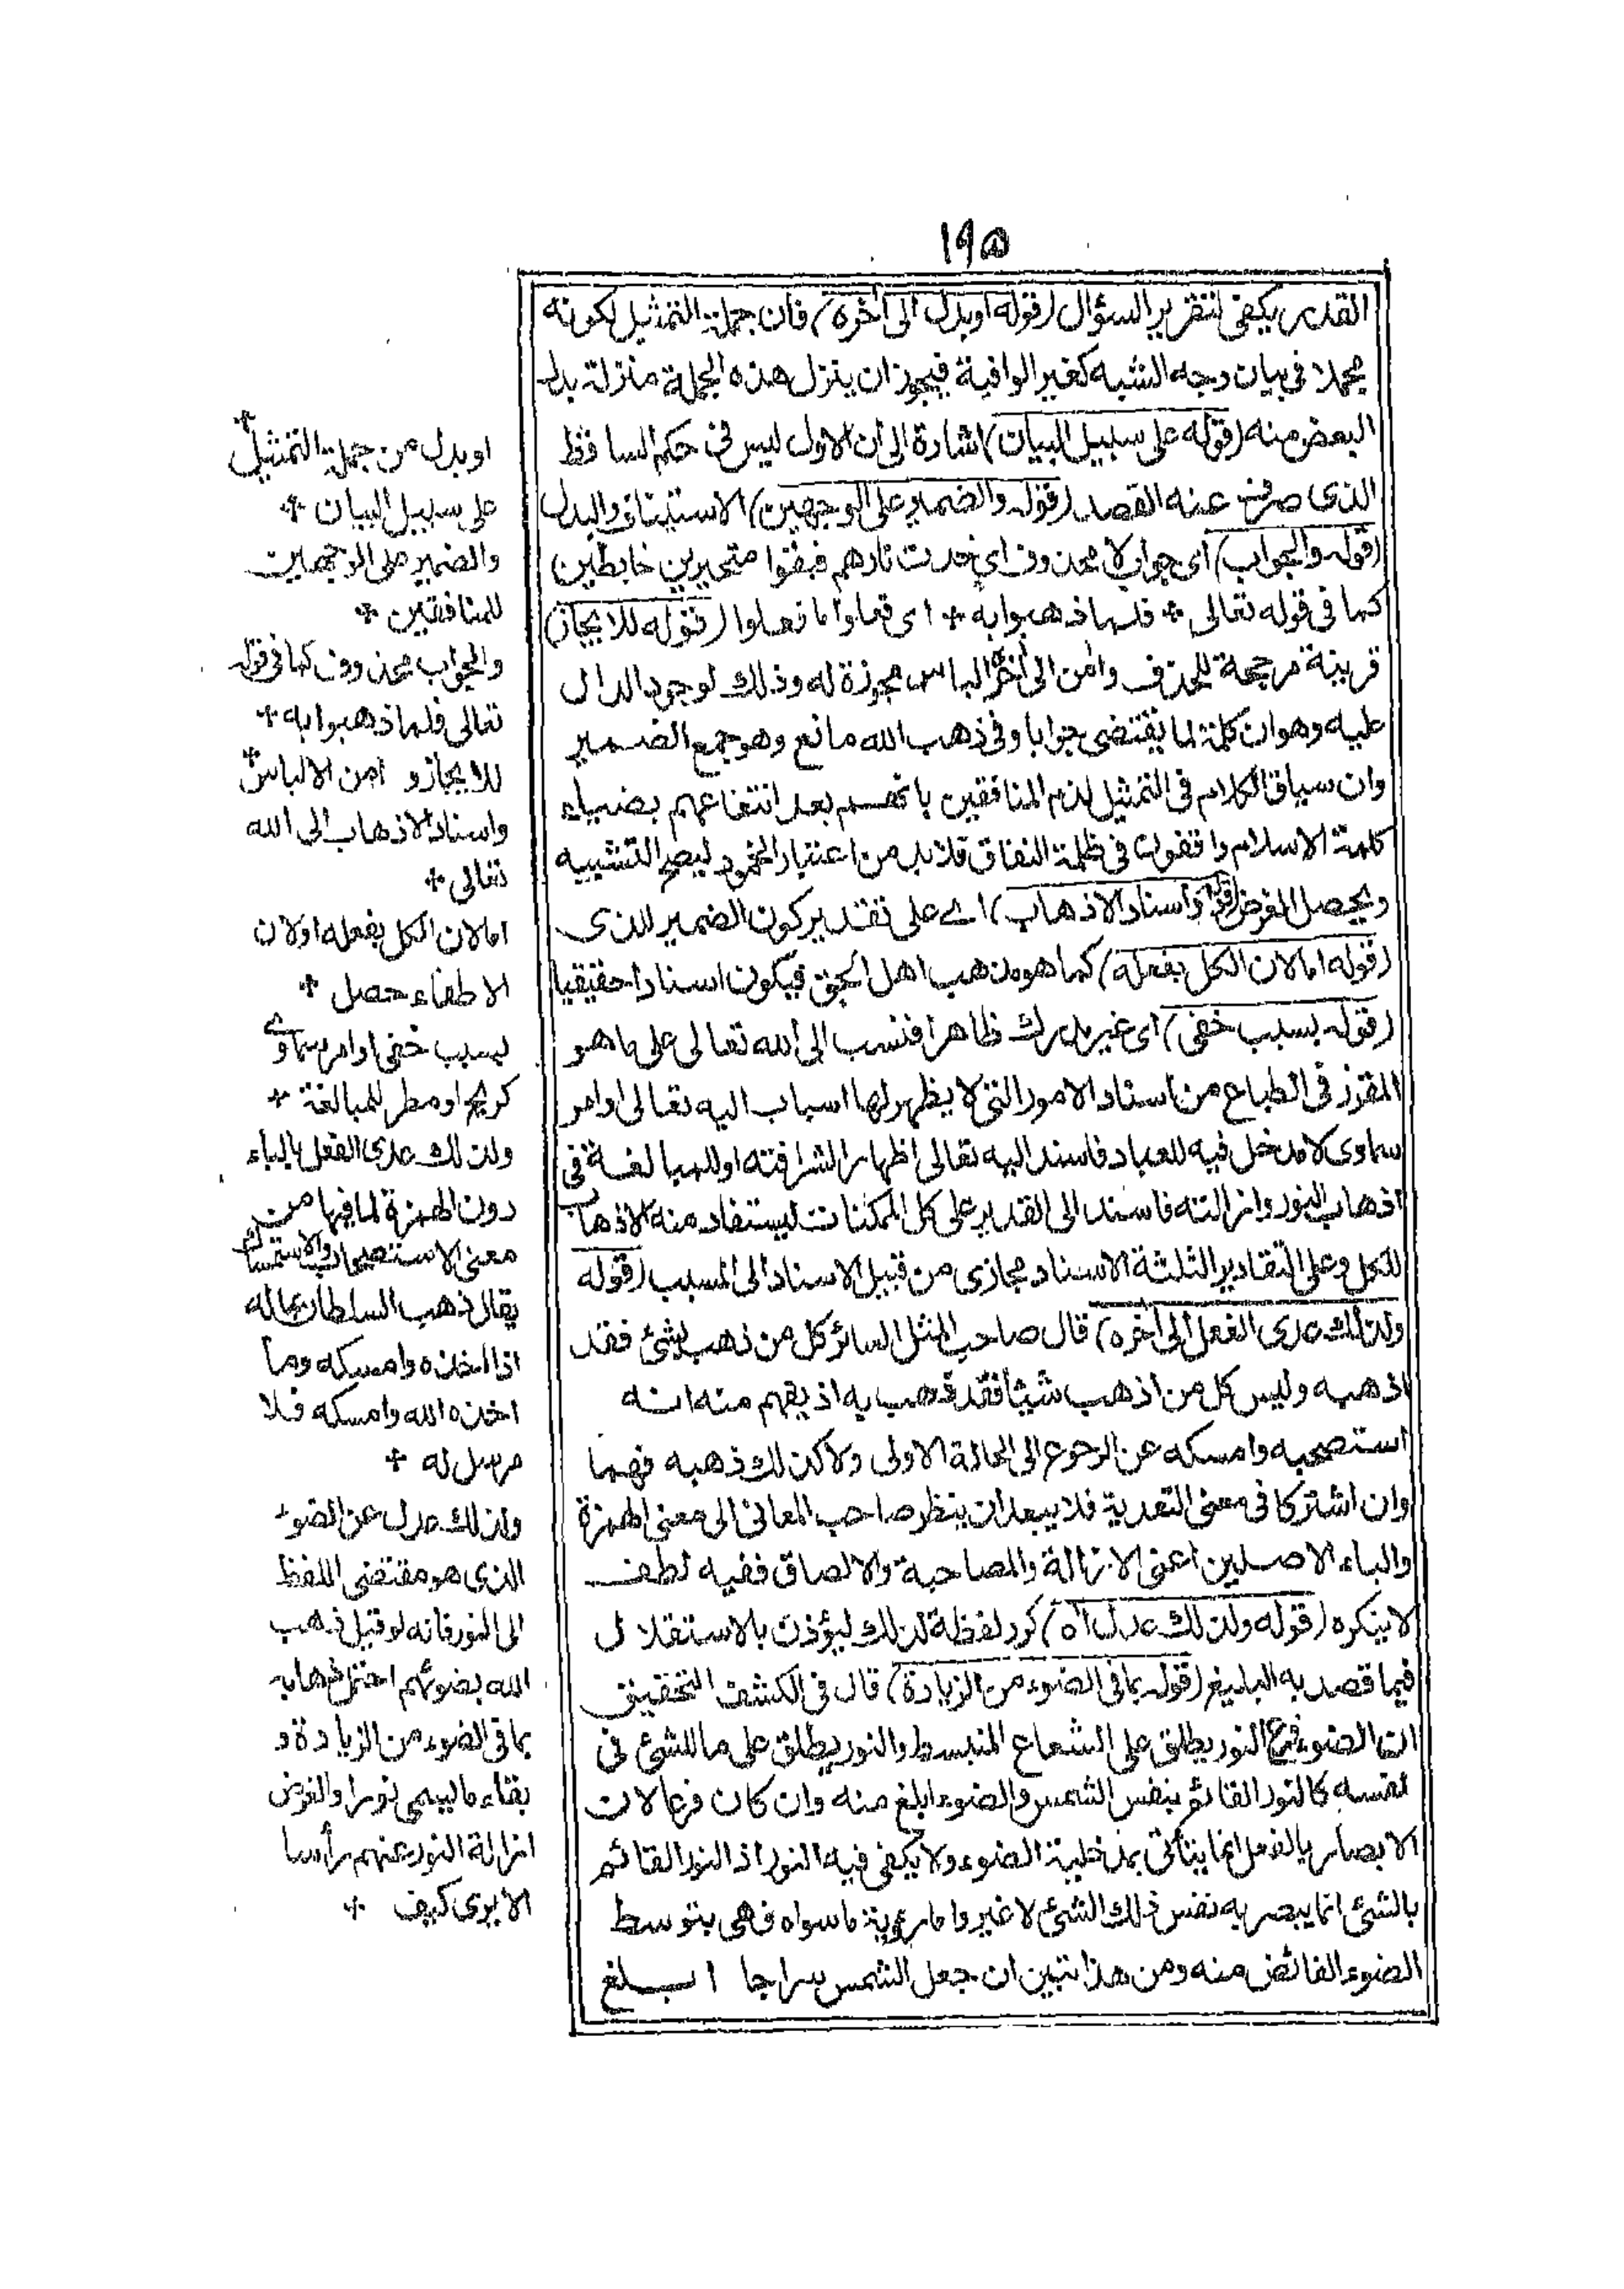 ١٩٥
القدر يكفى لتقرير السؤال (قوله او بدل الى اخره) فان جملة التمثيل لكونه
مجملا فى بيان وجه الشبه كغير الوافية فيجوز ان ينزل هذه الجملة منزلة بدل
البعض منه (قوله على سبيل البيان) اشارة الى ان الاول ليس فى حكم الساقط
الذى صرف عنه القصد (قوله والضمير على الوجهين) الاستيناف والبدل
(قوله والجواب) اى جواب لما محذوف اى خمدت نارهم فبقوا متحيرين خابطين
كما فى قوله تعالى * فلما ذهبوا به * اى فعلوا ما فعلوا (قوله للايجاز)
قرينة مرجحة للحذف وامن الى اخر الباس مجوزة له وذلك لوجود الدال
عليه وهو ان كلمة لما تقتضى جوابا وفى ذهب الله مانع وهو جمع الضمير
وان سياق الكلام فى التمثيل لذم المنافقين بانهم بعد انتفاعهم بضياء
كلمة الاسلام واقفون فى ظلمة النفاق فلا بد من اعتبار الخمود ليصح التشبيه
ويحصل الغرض (قوله واسناد الاذهاب) اے على تقدير كون الضمير للذى
(قوله اما لان الكل بفعله) كما هو مذهب اهل الحق فيكون اسنادا حقيقيا
(قوله بسبب خفى) اى غير مدرك ظاهرا فنسب الى الله تعالى على ما هو
المقرر فى الطباع من اسناد الامور التى لا يظهر لها اسباب اليه تعالى او امر
سماوى لا مدخل فيه للعباد فاسند اليه تعالى اظهارا لشرافته او للمبالغة فى
اذهاب النور وازالته فاسند الى القدير على كل الممكنات ليستفاد منه الاذهاب
للكل وعلى التقادير الثلثة الاسناد مجازى من قبيل الاسناد الى المسبب (قوله
ولذلك عدى الفعل الى اخره) قال صاحب المثل السائر كل من ذهب بشئ فقد
اذهبه وليس كل من اذهب شيئا فقد ذهب به اذ يفهم منه انه
استصحبه وامسكه عن الرجوع الى الحالة الاولى ولا كذلك ذهبه فهما
وان اشتركا فى معنى التعدية فلا يبعد ان ينظر صاحب المعانى الى معنى الهمزة
والباء الاصليين اعنى الازالة والمصاحبة والالصاق ففيه لطف
لا ينكره (قوله ولذلك عدل اه) كرر لفظة لذلك ليؤذن بالاستقلال
فيما قصد به البليغ (قوله بما فى الضوء من الزيادة) قال فى الكشف التحقيق
ان الضوء فرع النور يطلق على الشعاع المنبسط والنور يطلق على ما للشئ فى
نفسه كالنور القائم بنفس الشمس والضوء ابلغ منه وان كان فرعا لان
الابصار بالفعل انما يتأتى بمدخلية الضوء ولا يكفى فيه النور اذ النور القائم
بالشئ انما يبصر به نفس ذلك الشئ لا غير واما رؤية ما سواه فهى بتوسط
الضوء الفائض منه ومن هذا تبين ان جعل الشمس سراجا ابلغ
او بدل من جملة التمثيل *
على سبيل البيان *
والضمير على الوجهين
للمنافقين *
والجواب محذوف كما فى قوله
تعالى فلما ذهبوا به *
للايجاز و امن الالباس *
واسناد الاذهاب الى الله
تعالى *
اما لان الكل بفعله او لان
الاطفاء حصل *
بسبب خفى او امر سماوے
كريح او مطر للمبالغة *
ولذلك عدى الفعل بالباء
دون الهمزة لما فيها من
معنى الاستصحاب والاستمساك
يقال ذهب السلطان بماله
اذا اخذه وامسكه وما
اخذه الله وامسكه فلا
مرسل له *
ولذلك عدل عن الضوء
الذى هو مقتضى اللفظ
الى النور فانه لو قيل ذهب
الله بضوئهم احتمل ذهابه
بما فى الضوء من الزيادة و
بقاء ما يسمى نورا والغرض
ازالة النور عنهم رأسا
الا يرى كيف *